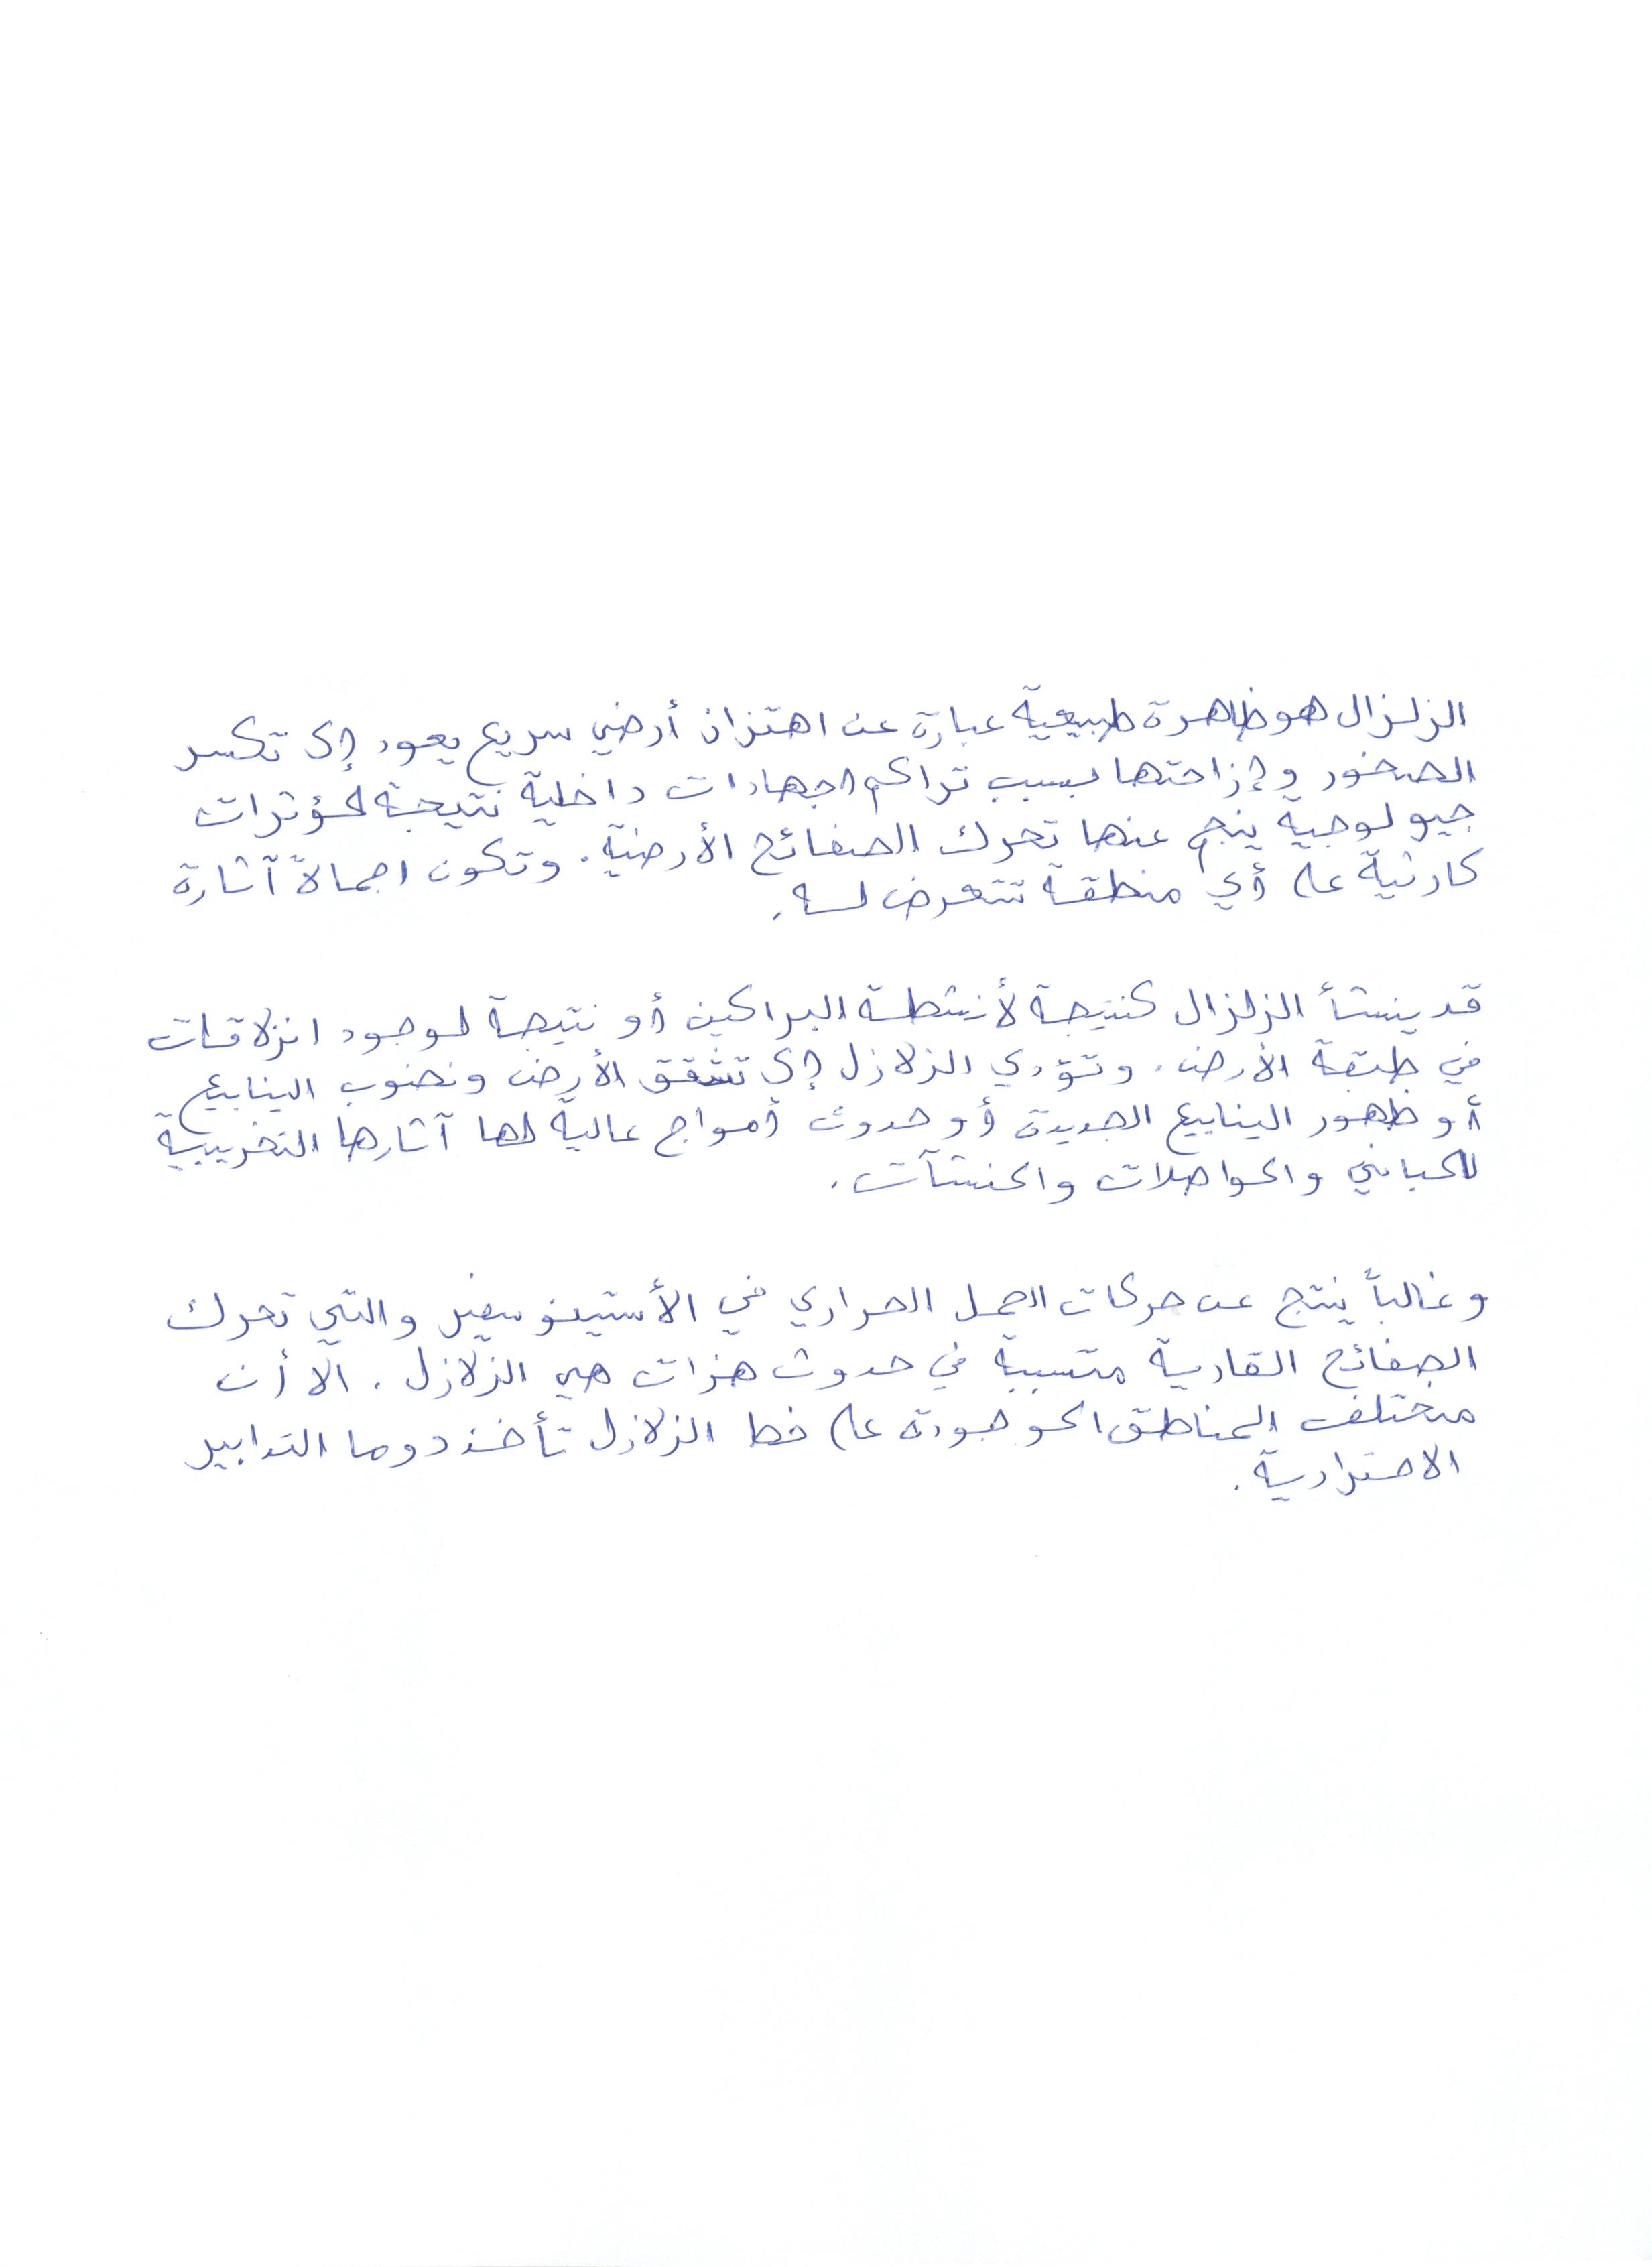 الزلزال هو ظاهرة طبيعية عبارة عن اهتزاز أرضي سريع يعود إلى تكسر
الصخور وإزاحتها بسبب تراكم اجهادات داخلية نتيجة لمؤثرات
جيولوجية ينجم عنها تحرك الصفائح الأرضية. وتكون اجمالاً آثارة
كارثية على أي منطقة تتعرض له.
قد ينشأ الزلزال كنتيجة لأنشطة البراكين أو نتيجة لوجود انزلاقات
في طبقة الأرض. وتؤدي الزلازل إلى تشقق الأرض ونضوب الينابيع
أو ظهور الينابيع الجديدة أو حدوث أمواج عالية لها آثارها التخريبية
للمباني والمواصلات والمنشآت.
وغالباً ينتج عن حركات الحمل الحراري في الأستينوسفير والتي تحرك
الصفائح القارية متسببة في حدوث هزات هي الزلازل. الا أن
مختلف المناطق الموجودة على خط الزلازل تأخذ دوما التدابير
الاحترازية.